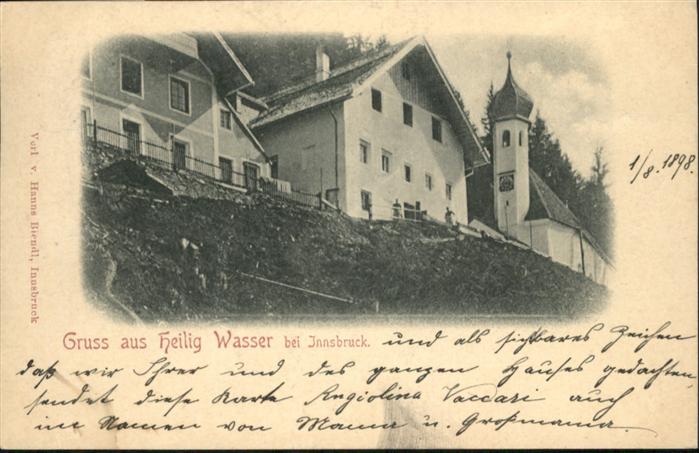 Verl v. Hanns Biendl, Innsbruck
1/8. 1898.
Gruss aus Heilig Wasser bei Innsbruck. und als sichtbares Zeichen
daß wir Ihrer und des ganzen Hauses gedachten
sendet diese Karte Angiolina Vaccari auch
im Namen von Mama u. Großmama.